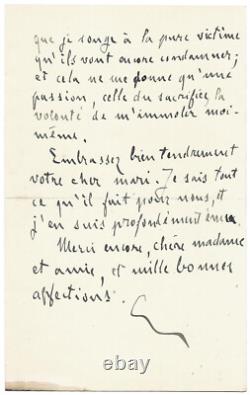 que je songe à la pure victime
qu'ils vont encore condamner;
et cela ne me donne qu'une
passion, celle du sacrifice, la
volonté de m'immoler moi-
même.
Embrassez bien tendrement
votre cher mari. Je sais tout
ce qu'il fait pour nous, et
j'en suis profondément ému.
Merci encore, chère madame
et amie, et mille bonnes
affections.
ebay